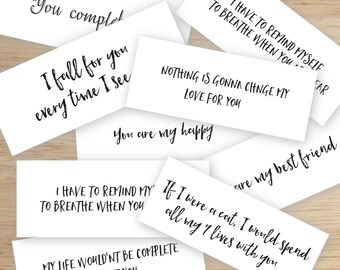 You complet
I HAVE TO REMIND MYSELF
TO BREATHE WHEN YOU
EAR
I fall for you
every time I see
NOTHING IS GONNA CHNGE MY
LOVE FOR YOU
You are my happy
are my best friend
I HAVE TO REMIND MY
TO BREATHE WHEN YOU
If I were a cat, I would spend
all my 9 lives with you
MY LIFE WOULDN'T BE COMPLETE
YOU